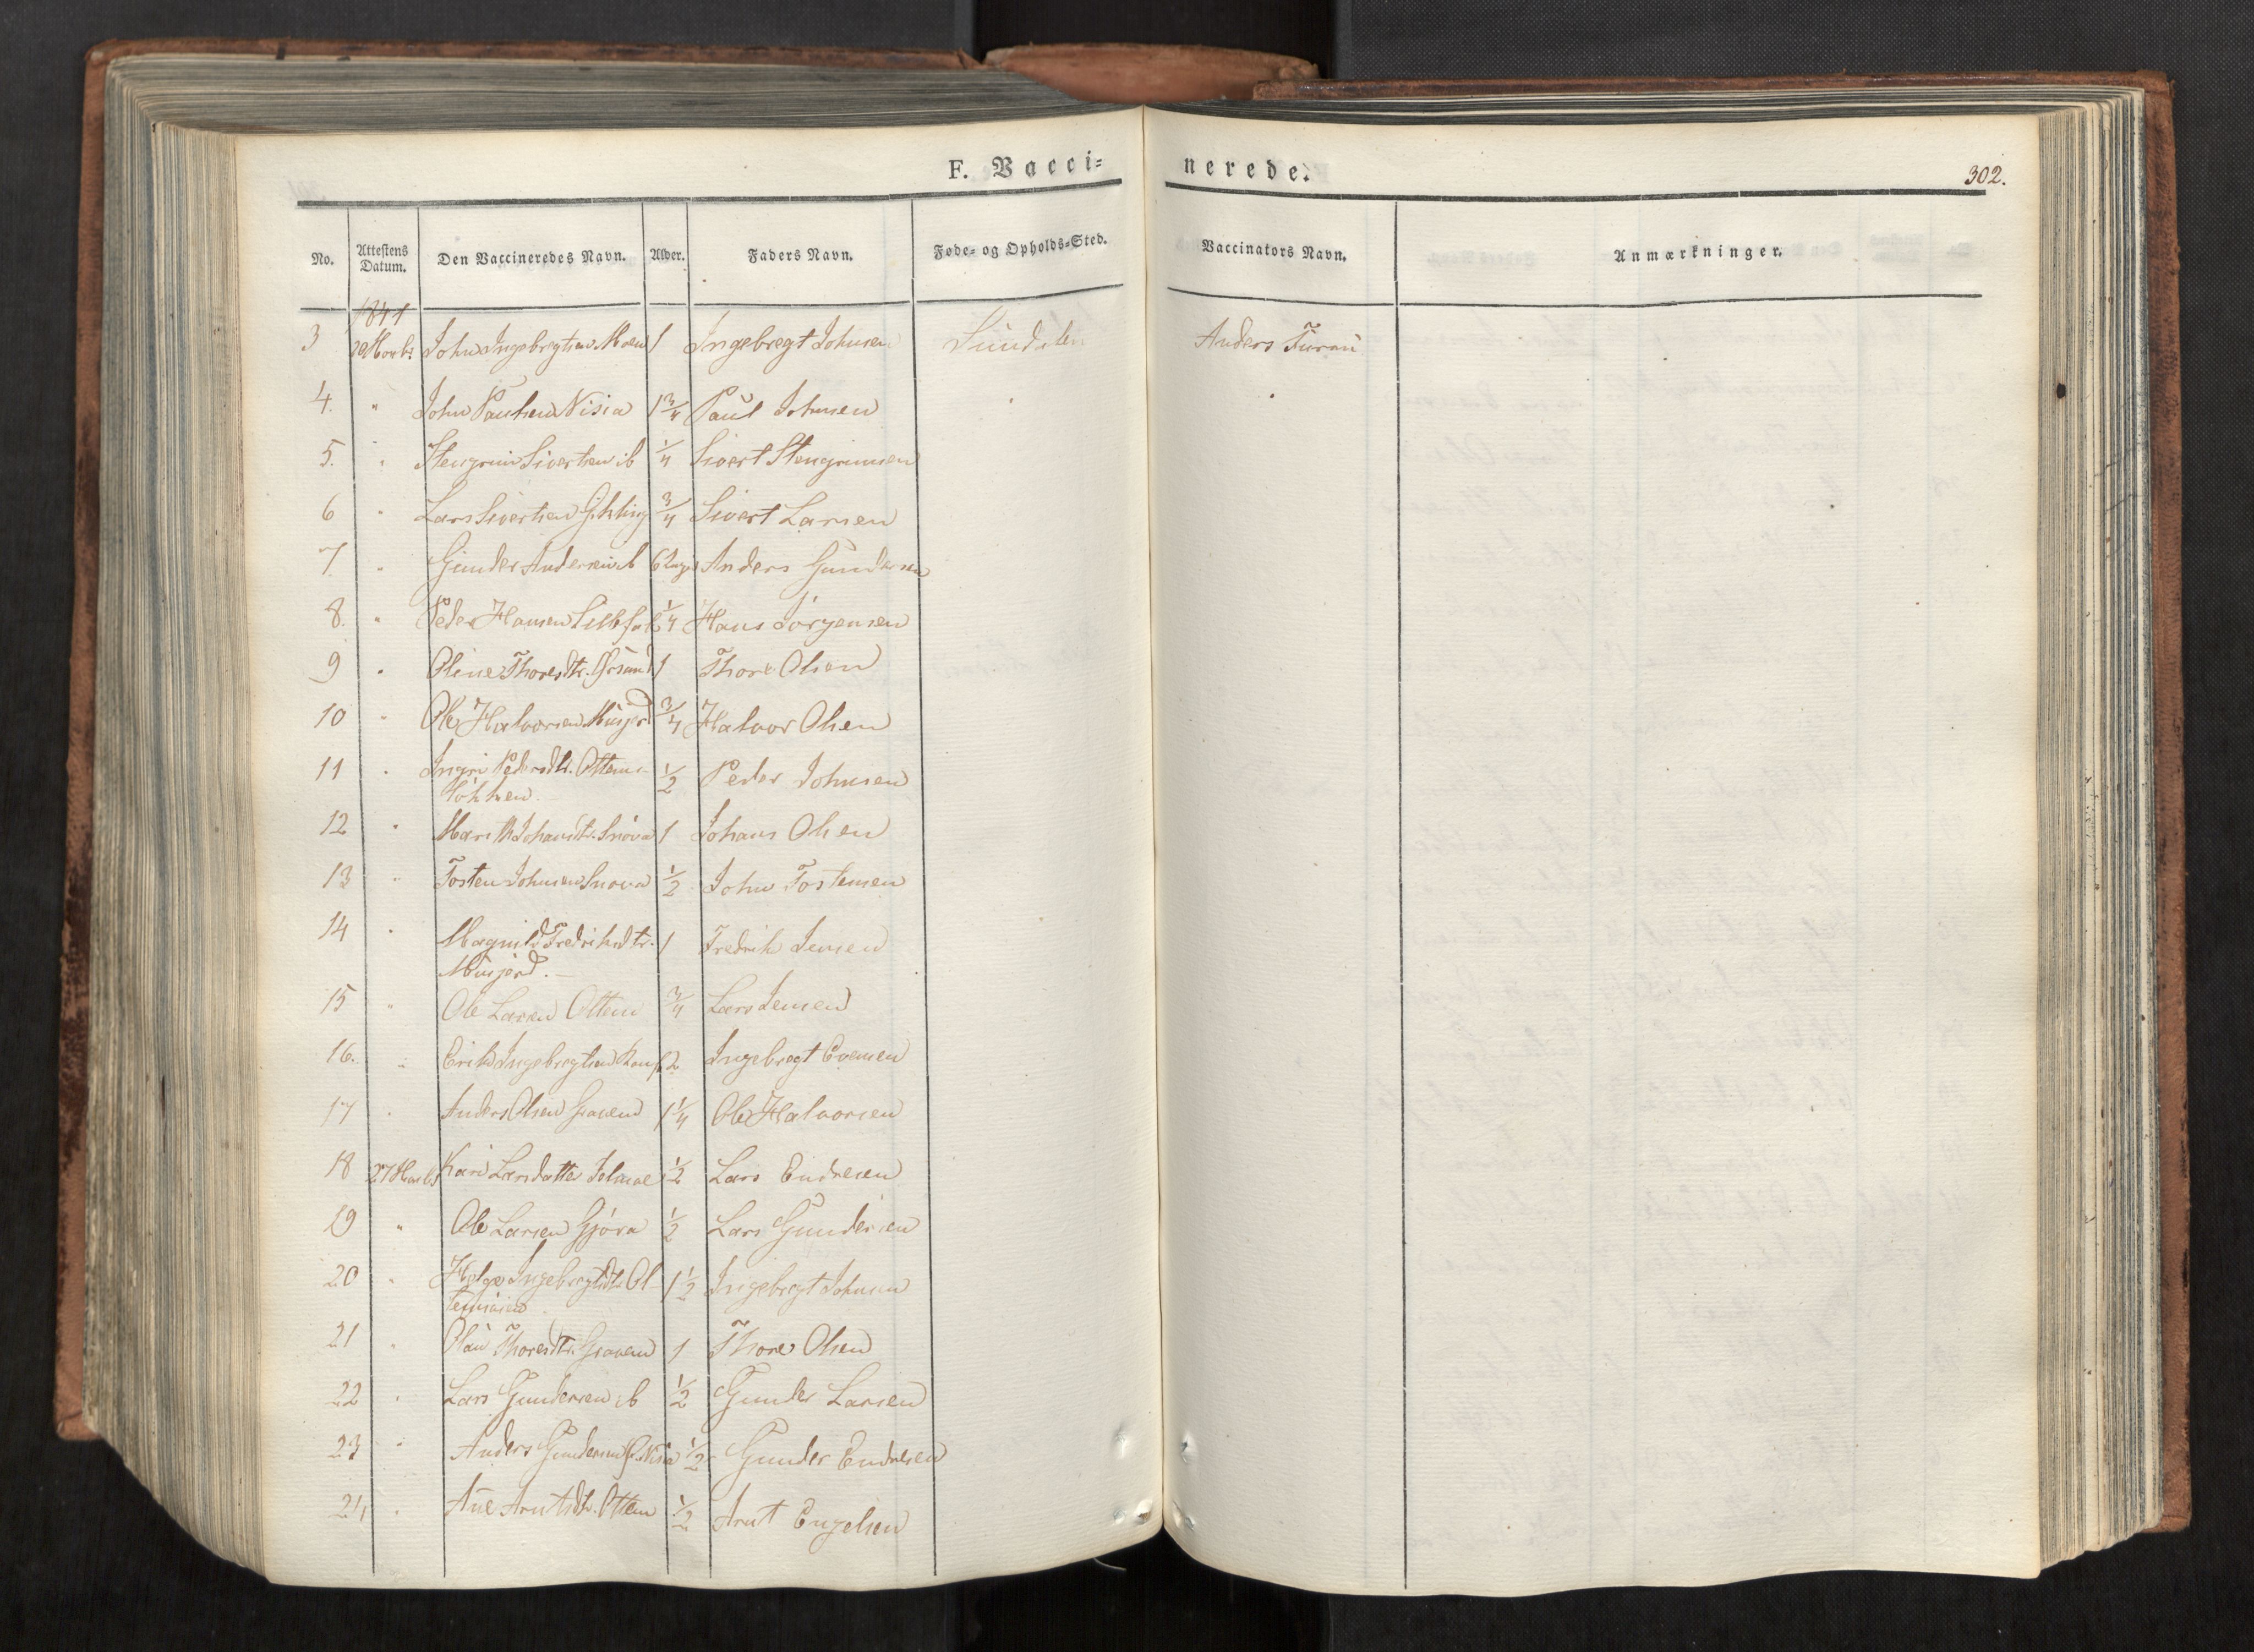 F. Vacci=
nerede.
302.
No.
Attestens Datum.
Den Vaccineredes Navn.
Alder.
Faders Navn.
Føde- og Opholds-Sted.
Vaccinators Navn.
Anmærkninger.
1841
3 John Ingebregtsen Moen 1 Ingebregt Johnsen Sundalen Anders Furru
4. " John Paulsen Nisia 1 3/4 Paul Johnsen
5. " Stengrim Sivertsen ib 1/4 Sivert Stengrimsen
6 " Lars Sivertsen 3/4 Sivert Larsen
7 " Gunder Andersen ib 6 Anders Gundersen
8. " Peder Hansen 1/4 Hans Jörgensen
9 " Oline Thoresdtr. 1 Thore Olsen
10 " Ole Halvorsen Musjerd 3/4 Halvor Olsen
11 " Ingri Pedersdtr. Ottems-
1/2 Peder Johnsen
12 " Marit Johansdtr. Snöva 1 Johans Olsen
13 " Tosten Johnsen Snöva 1/2 John Tostensen
14 " Magnild Fredriksdtr. 1 Fredrik Jensen
Musjerd.
15 " Ole Larsen Ottem 3/4 Lars Jensen
16. " Erik Ingebregtsen 2 Ingebregt Evensen
17 " Anders Olsen Graven 1 1/4 Ole Halvorsen
18 27 Kari Larsdatter 1/2 Lars Endresen
19 " Ole Larsen Gjöra 1/2 Lars Gundersen
20 " Helge Ingebregtsdtr. 1 1/2 Ingebregt Johnsen
21 " Thoresdtr. Graven 1 Thore Olsen
22 " Lars Gundersen ib 1/2 Gunder Larsen
23 " Anders Gundersen 1/2 Gunder Endresen
24 " Ane Arntsdtr. Ottem 1/2 Arnt Engelsen